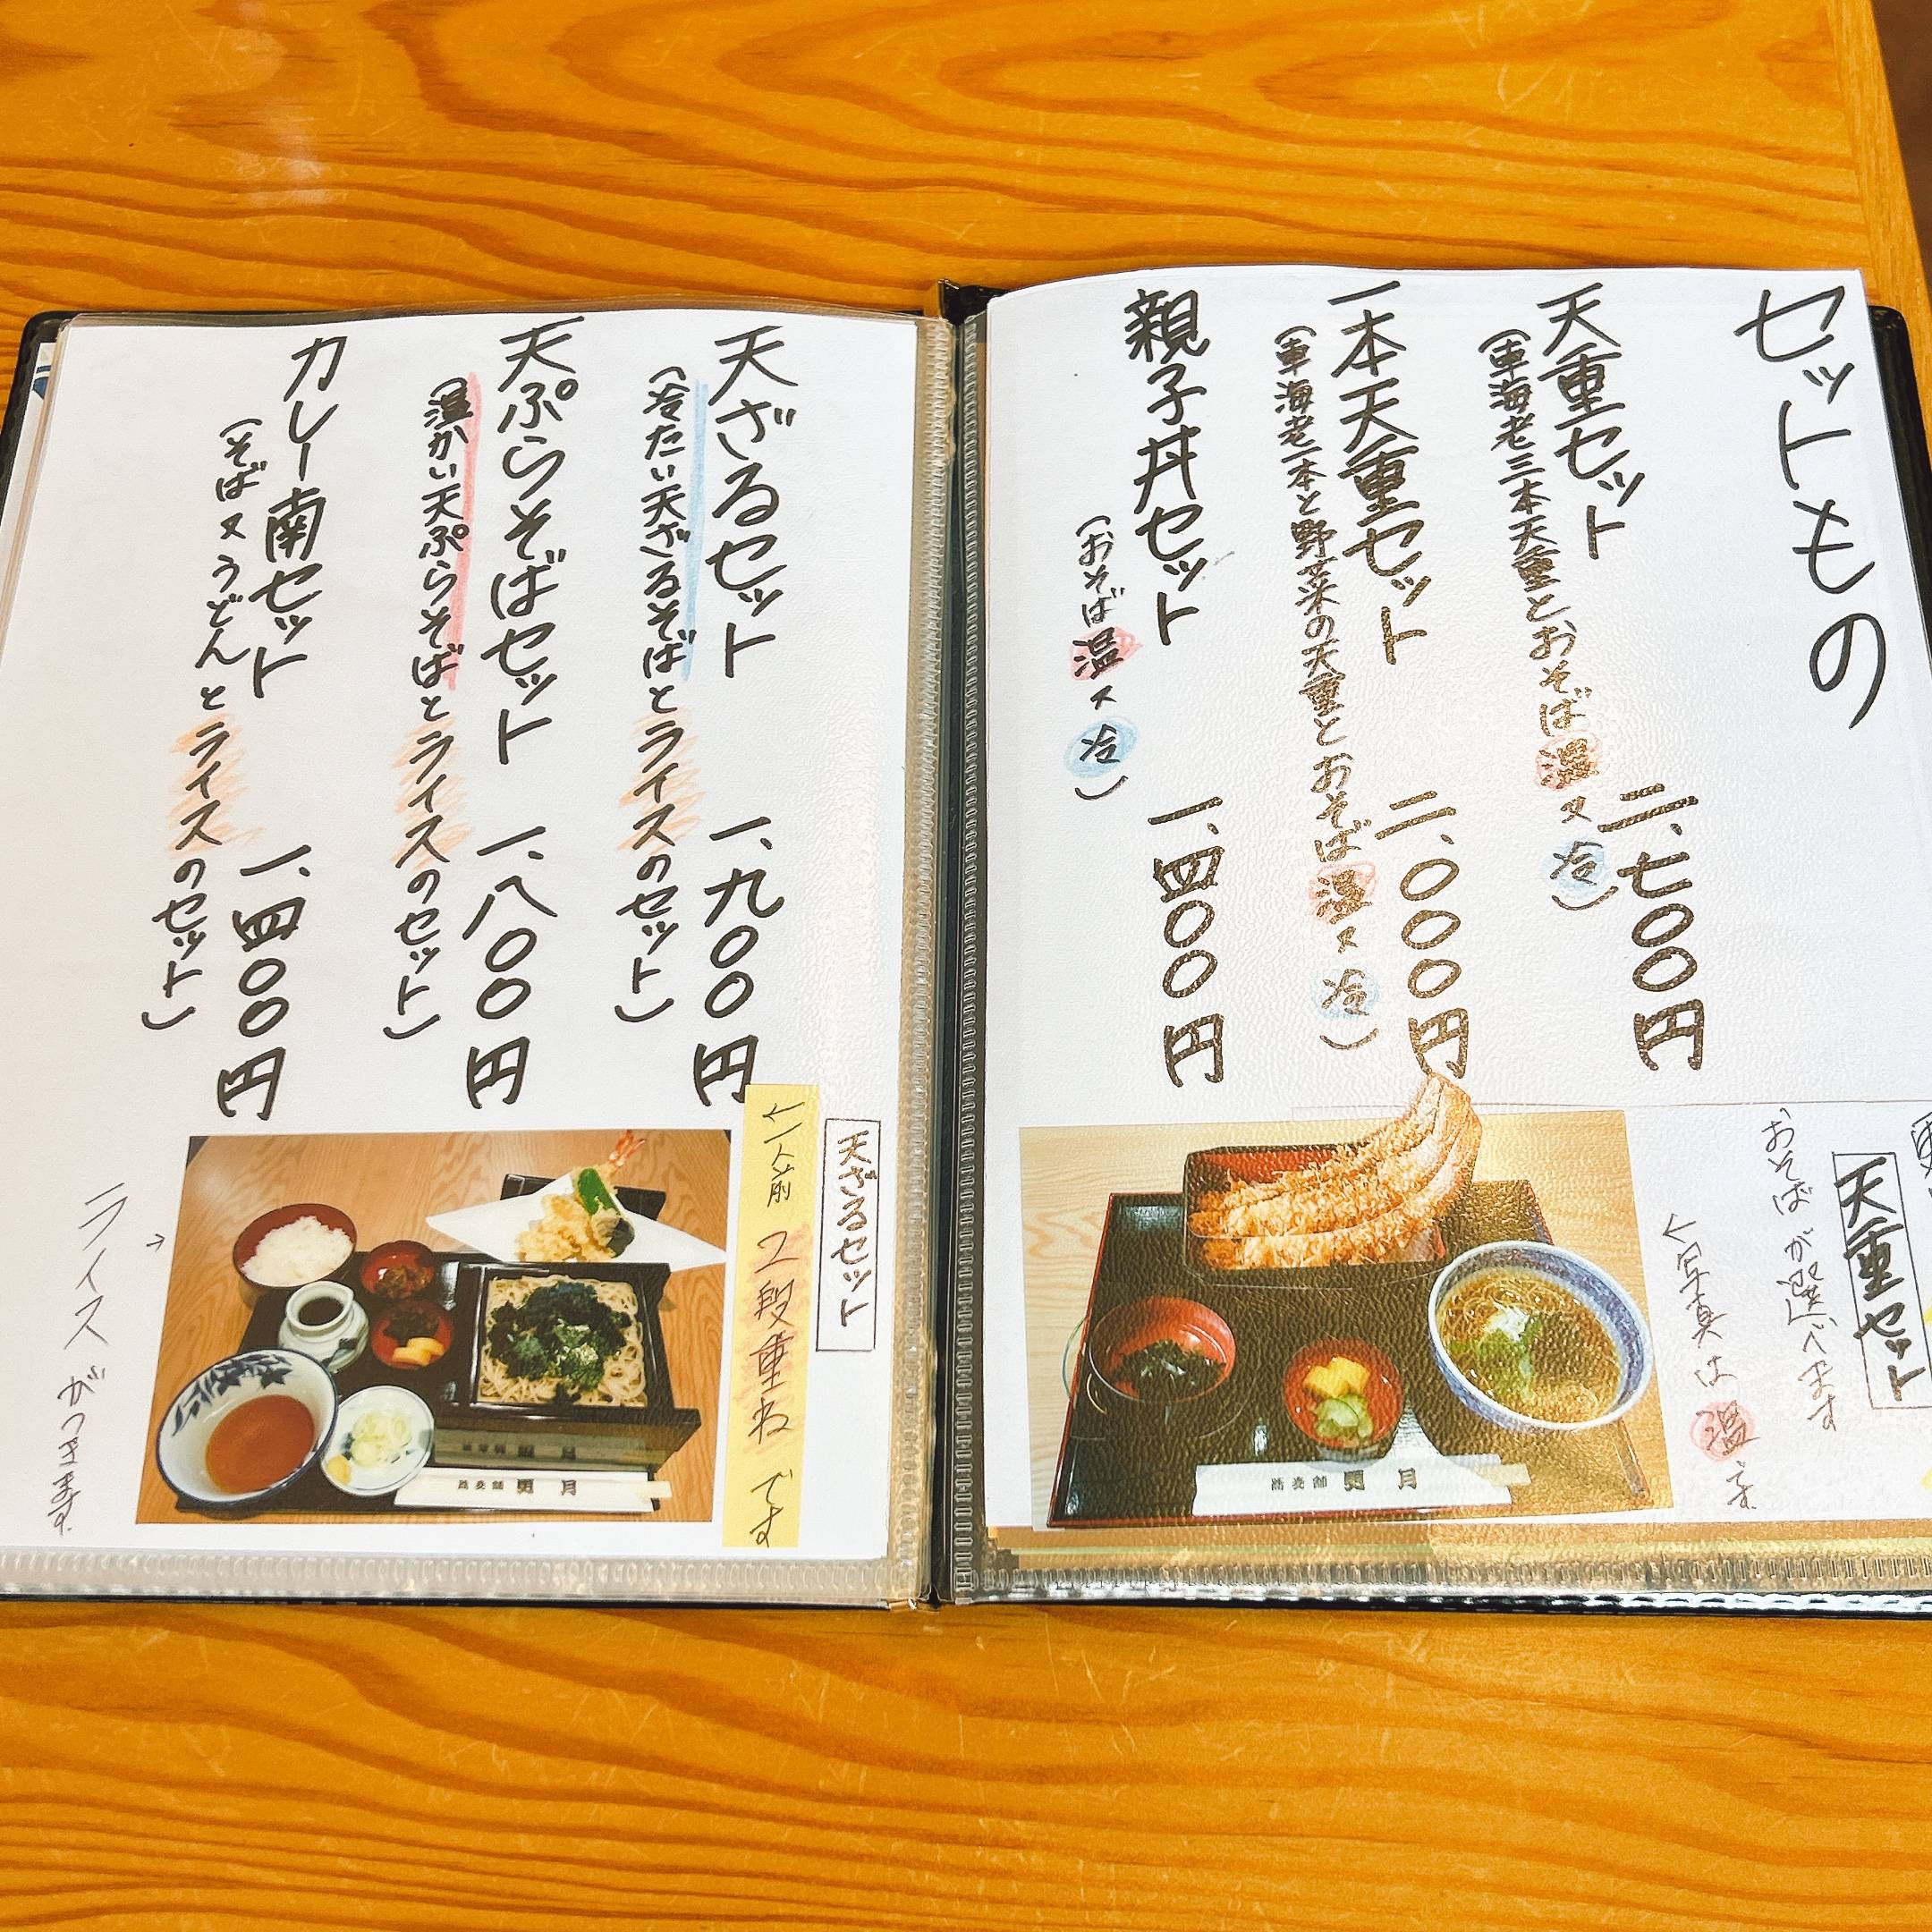 セットもの
天重セット 二、七〇〇円
(車海老三本天重とおそば温又冷)
一本天重セット 二、〇〇〇円
(車海老一本と野菜の天重とおそば温又冷)
親子丼セット 一、四〇〇円
(おそば温又冷)
天重セット
おそばが選べます
←写真は温です
蕎麦舗 更月
天ざるセット 一、九〇〇円
(冷たい天ざるそばとライスのセット)
天ぷらそばセット 一、八〇〇円
(温かい天ぷらそばとライスのセット)
カレー南セット 一、四〇〇円
(そば又うどんとライスのセット)
天ざるセット
←一人前 2段重ねです
蕎麦舗 更月
ライスがつきます。→